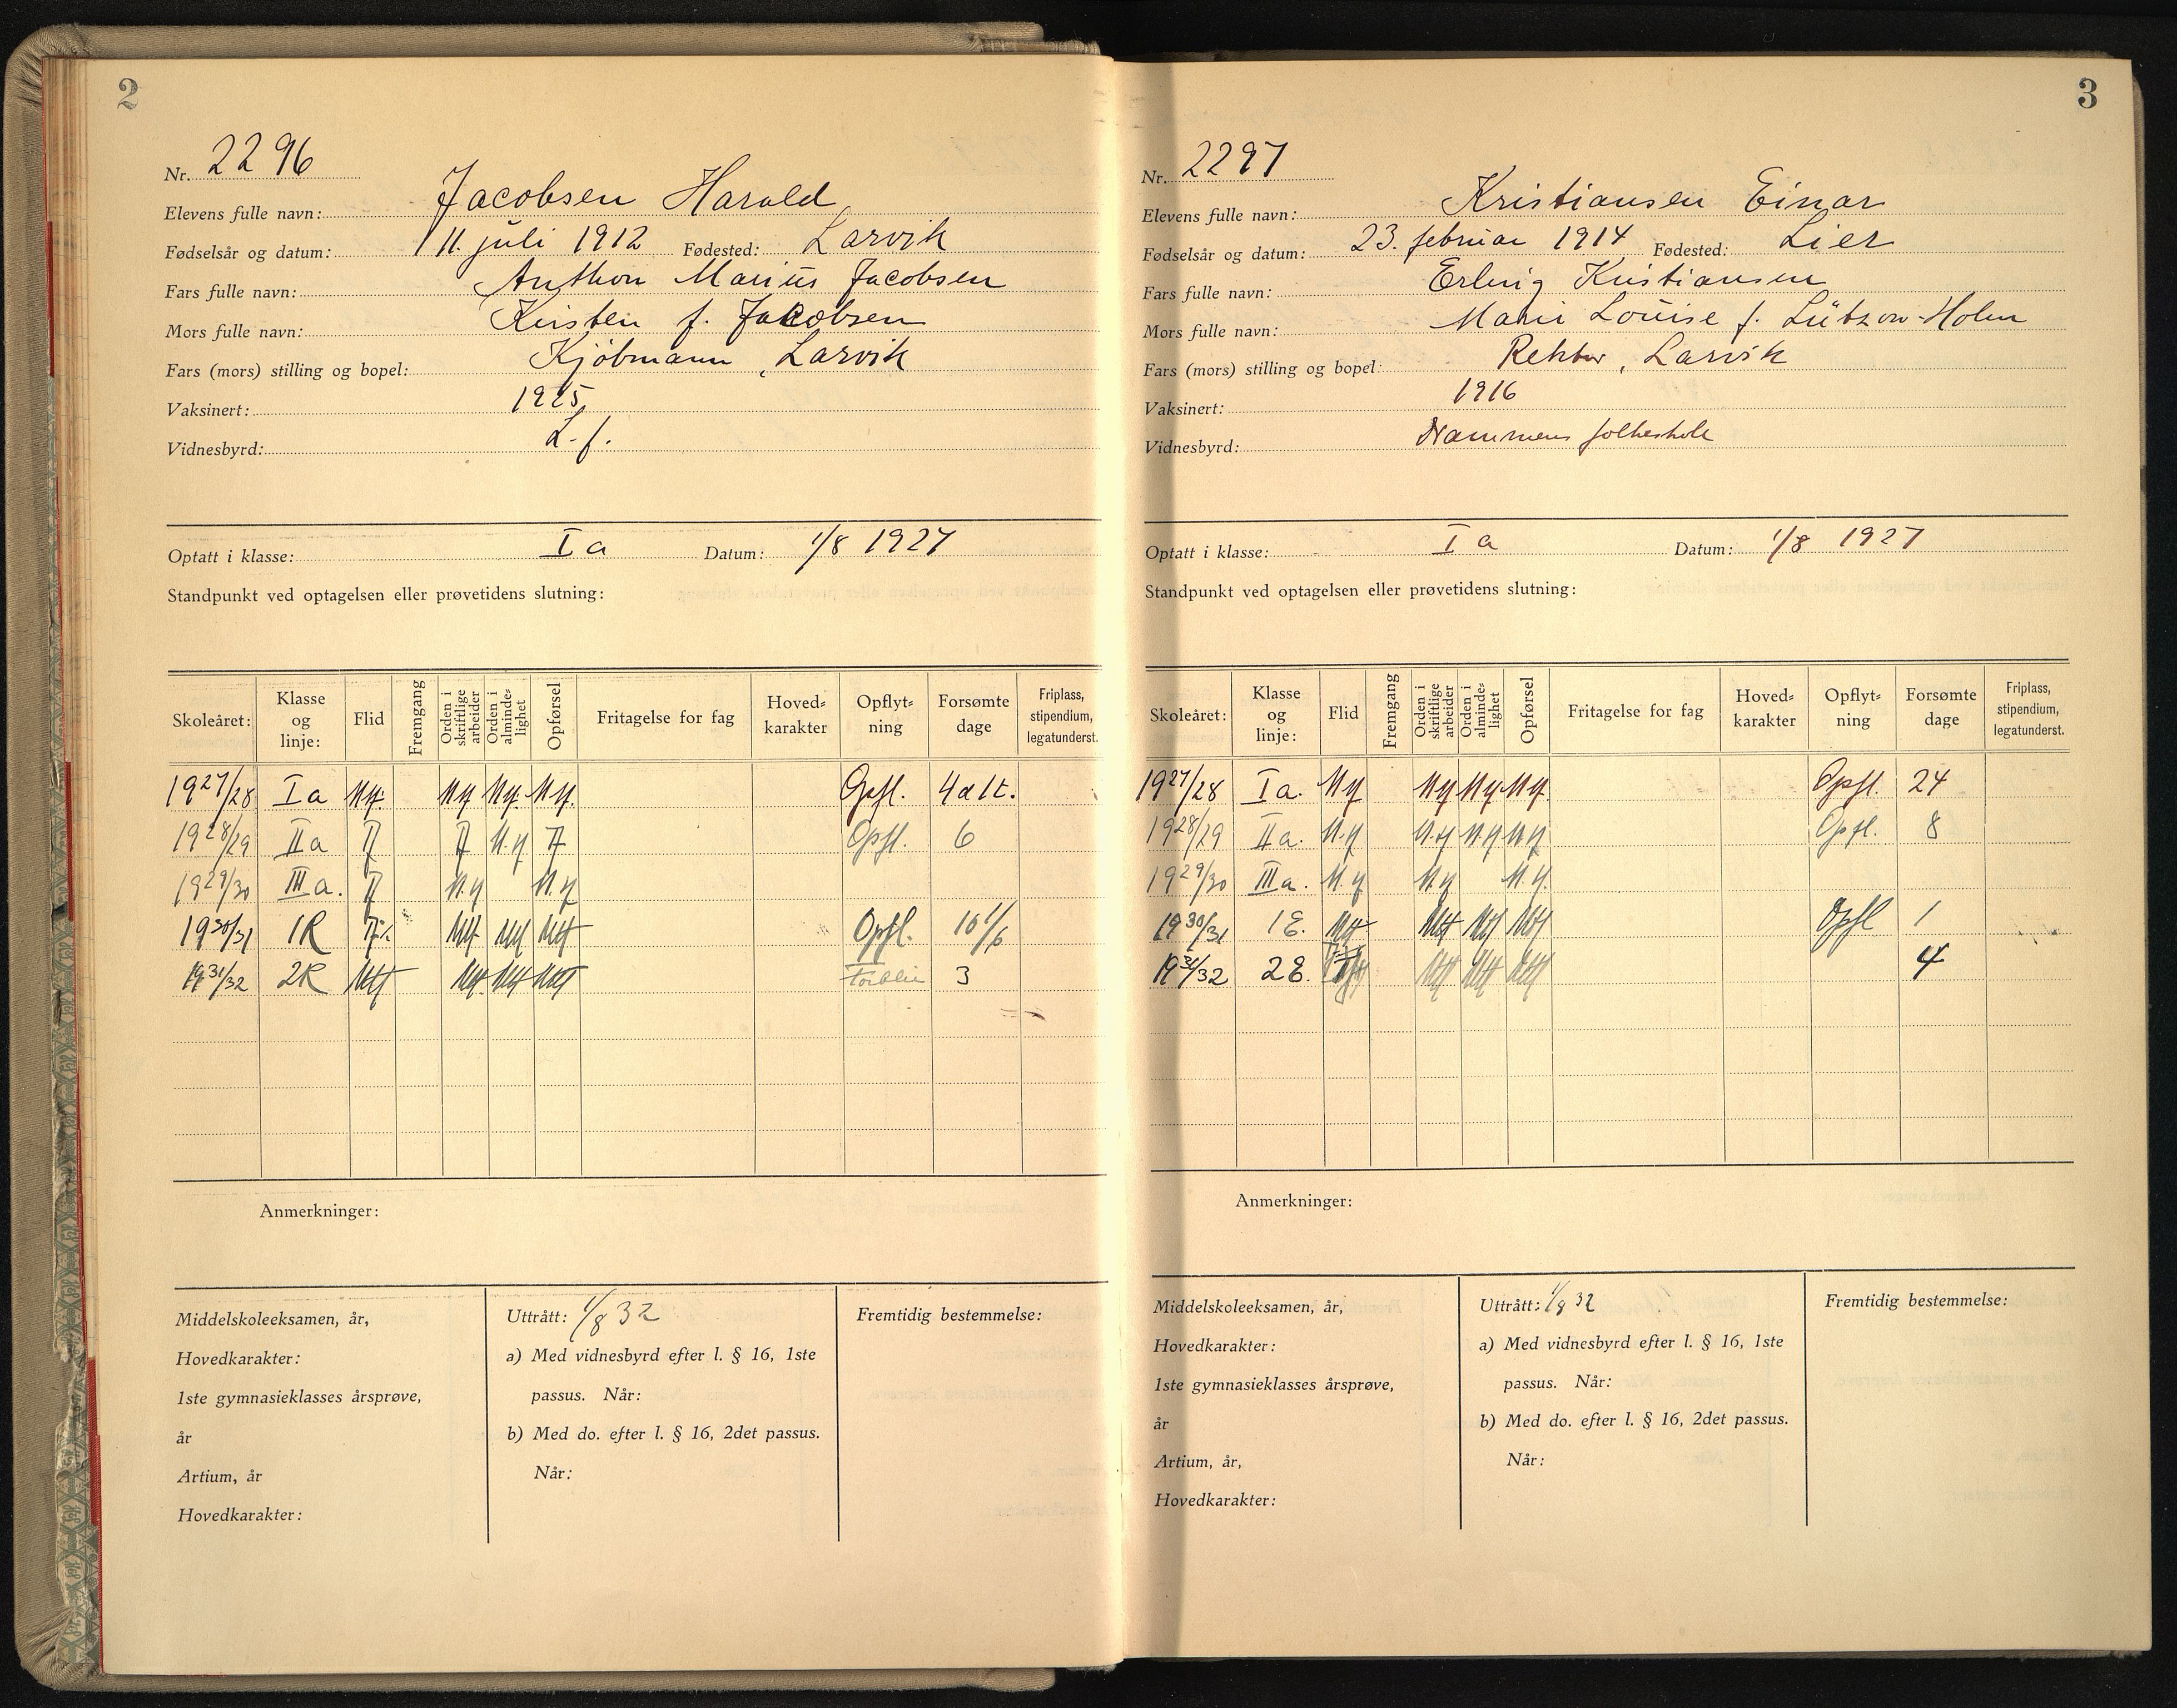 2
Nr. 2296
Elevens fulle navn: Jacobsen Harald
Fødselsår og datum: 11. juli 1912 Fødested: Larvik
Fars fulle navn: Anthon Marius Jacobsen
Mors fulle navn: Kirsten f. Jacobsen
Fars (mors) stilling og bopel: Kjöbmann, Larvik
Vaksinert: 1925
Vidnesbyrd: L. f.
Optatt i klasse: I a Datum: 1/8 1927
Standpunkt ved optagelsen eller prøvetidens slutning:
Skoleåret: Klasse og linje: Flid Fremgang Orden i skriftlige arbeider Orden i almindelighet Opførsel Fritagelse for fag Hoved-karakter Opflyt-ning Forsømte dage Friplass, stipendium, legatunderst.
1927/28 I a Mg. Mg Mg. Mg. Opfl. 4 a 1 t.
1928/29 II a M.g Opfl. 6
1929/30 III a. M.g M.g
1930/31 1R Mtf Mtf Mtf Opfl. 10 1/6
1931/32 2R Mtf Mtf Mtf Mtf 3
Anmerkninger:
Middelskoleeksamen, år,
Hovedkarakter:
1ste gymnasieklasses årsprøve,
år
Artium, år
Hovedkarakter:
Uttrått: 1/8 32
a) Med vidnesbyrd efter l. § 16, 1ste
passus. Når:
b) Med do. efter l. § 16, 2det passus.
Når:
Fremtidig bestemmelse:
3
Nr. 2297
Elevens fulle navn: Kristiansen Einar
Fødselsår og datum: 23. februar 1914 Fødested: Lier
Fars fulle navn: Erling Kristiansen
Mors fulle navn: Marie Louise f. Lützow-Holm
Fars (mors) stilling og bopel: Rektor, Larvik
Vaksinert: 1916
Vidnesbyrd: Drammens folkeskole
Optatt i klasse: I a Datum: 1/8 1927
Standpunkt ved optagelsen eller prøvetidens slutning:
Skoleåret: Klasse og linje: Flid Fremgang Orden i skriftlige arbeider Orden i almindelighet Opførsel Fritagelse for fag Hoved-karakter Opflyt-ning Forsømte dage Friplass, stipendium, legatunderst.
1927/28 I a. Mg Mg Mg Mg. Opfl. 24
1928/29 II a. M.g M.g M.g M.g Opfl. 8
1929/30 III a. M.g M.g M.g.
1930/31 1E. Mtf Mtf Mtf Mtf Opfl 1
1931/32 2E. Mtf Mtf Mtf 4
Anmerkninger:
Middelskoleeksamen, år,
Hovedkarakter:
1ste gymnasieklasses årsprøve,
år
Artium, år,
Hovedkarakter:
Uttrått: 1/8 32
a) Med vidnesbyrd efter l. § 16, 1ste
passus. Når:
b) Med do. efter l. § 16, 2det passus.
Når:
Fremtidig bestemmelse: